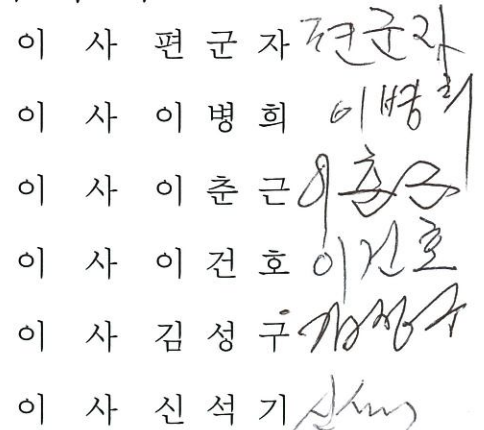 이 사 편 군 자 편군자
이 사 이 병 희 이병희
이 사 이 춘 근 이춘근
이 사 이 건 호 이건호
이 사 김 성 구 김성구
이 사 신 석 기